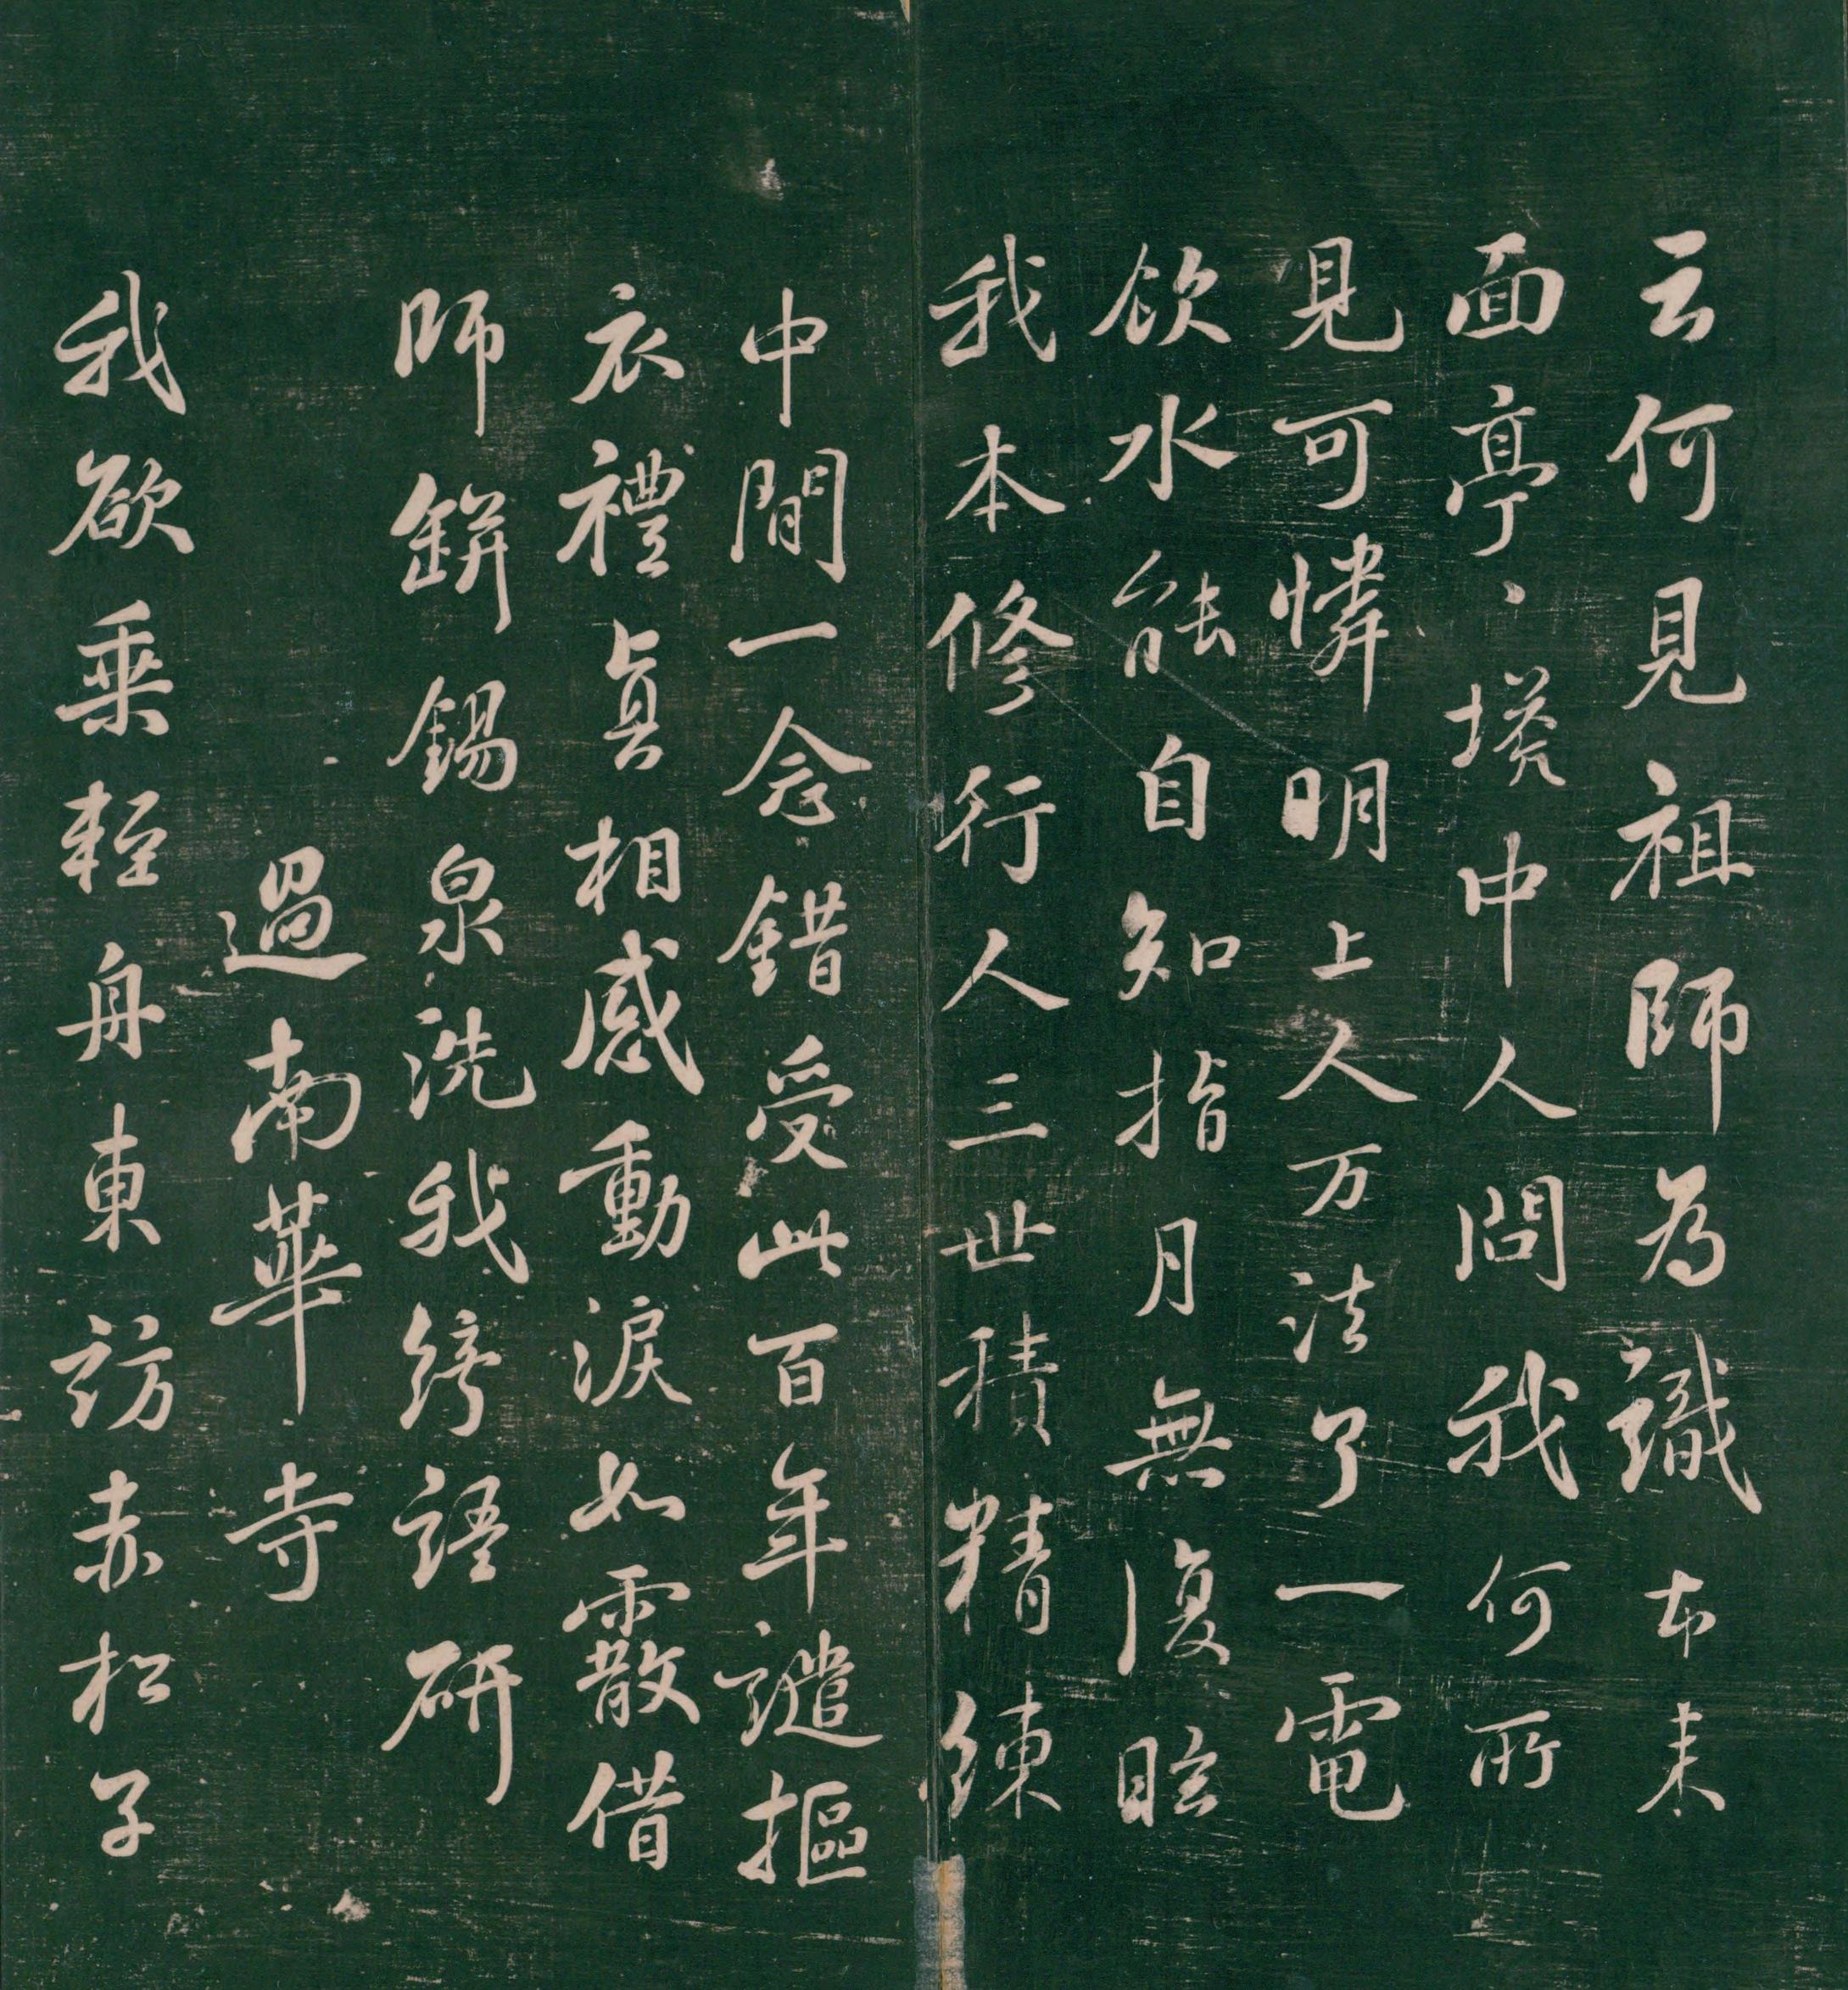 云何見祖師為識本来
面亭〻塔中人問我何所
見可憐明上人万法了一電
飲水能自知指月無復眩
我本修行人三世積精練
中間一念錯受此百年譴摳
衣禮真相感動淚如霰借
師缾錫泉洗我綺語硏
過南華寺
我欲乗輕舟東訪赤松子